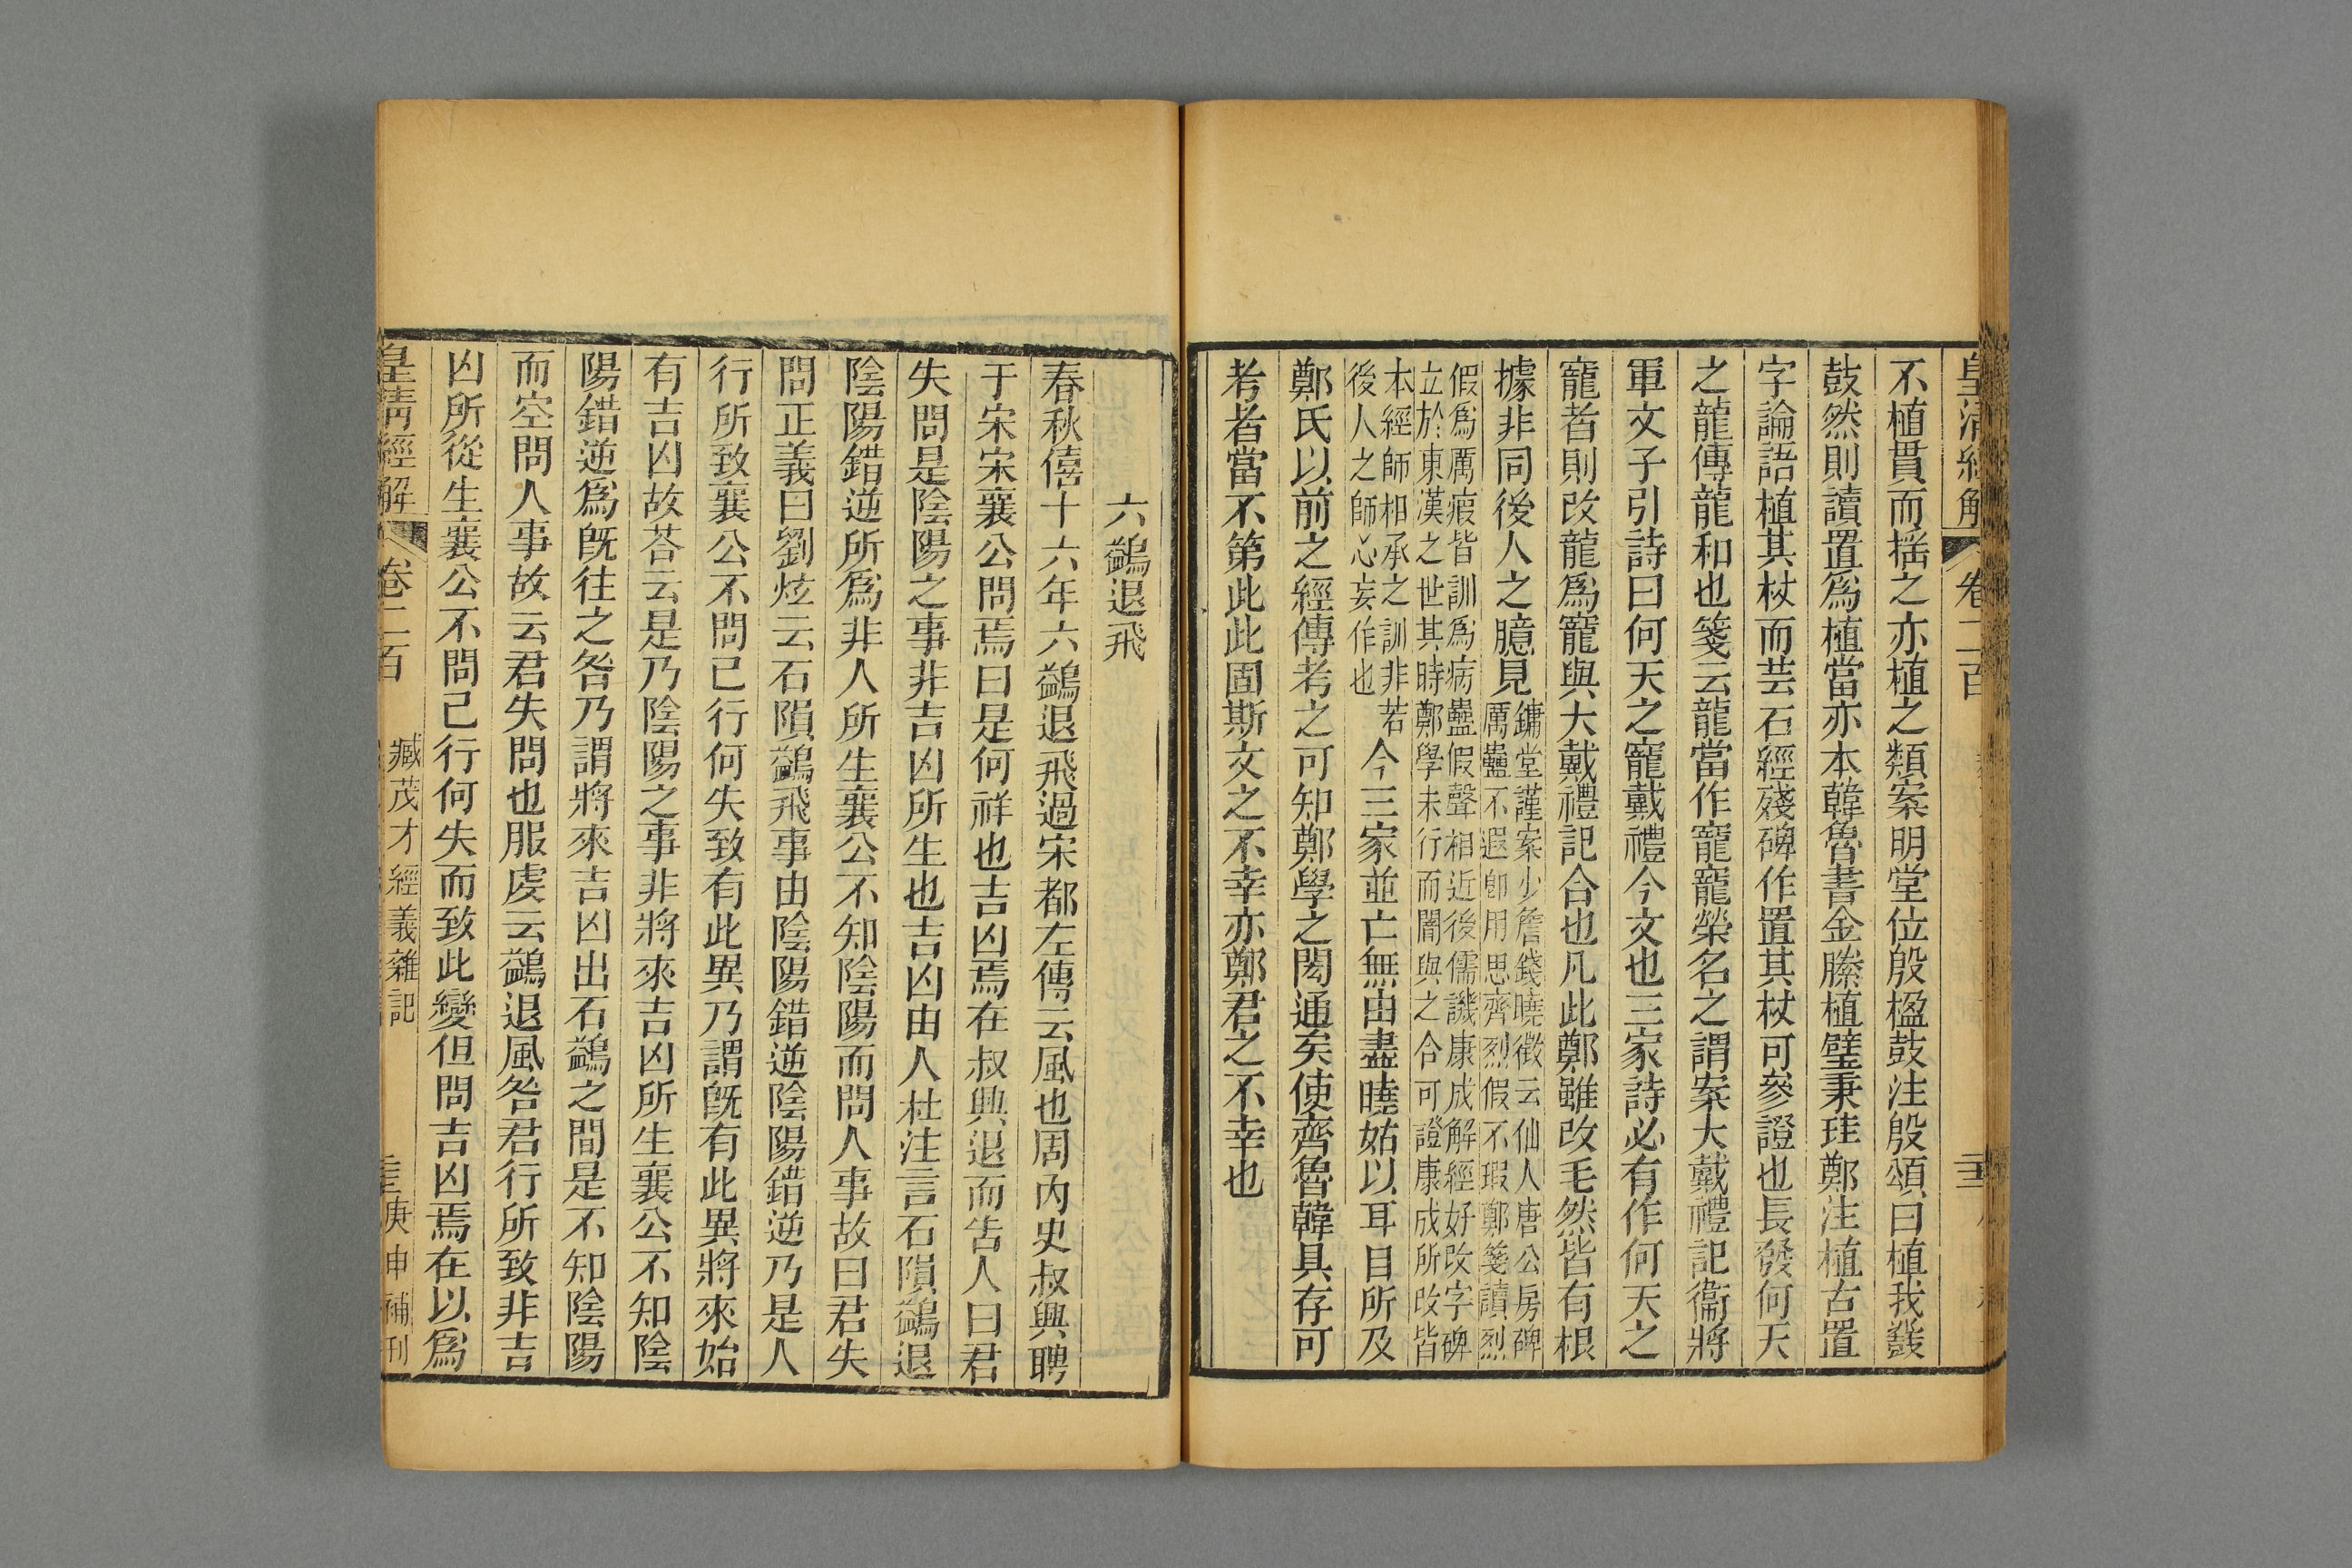 皇清經解 卷二百
不植貫而搖之亦植之類案明堂位殷楹鼓注殷頌曰植我鼗
鼓然則讀置爲植當亦本韓魯書金縢植璧秉珪鄭注植古置
字論語植其杖而芸石經殘碑作置其杖可參證也長發何天
之龍傳龍和也箋云龍當作寵寵榮名之謂案大戴禮記衞將
軍文子引詩曰何天之寵戴禮今文也三家詩必有作何天之
寵者則改龍爲寵與大戴禮記合也凡此鄭雖改毛然皆有根
據非同後人之臆見鏞堂謹案少詹錢曉徵云仙人唐公房碑
厲蠱不遐卽用思齊烈假不瑕鄭箋讀烈
假爲厲瘕皆訓爲病蠱假聲相近後儒譏康成解經好改字碑
立於東漢之世其時鄭學未行而闇與之合可證康成所改皆
本經師相承之訓非若
後人之師心妄作也今三家並亡無由盡曉姑以耳目所及
鄭氏以前之經傳考之可知鄭學之閎通矣使齊魯韓具存可
考者當不第此此固斯文之不幸亦鄭君之不幸也
六鷁退飛
春秋僖十六年六鷁退飛過宋都左傳云風也周內史叔興聘
于宋宋襄公問焉曰是何祥也吉凶焉在叔興退而告人曰君
失問是陰陽之事非吉凶所生也吉凶由人杜注言石隕鷁退
陰陽錯逆所爲非人所生襄公不知陰陽而問人事故曰君失
問正義曰劉炫云石隕鷁飛事由陰陽錯逆陰陽錯逆乃是人
行所致襄公不問己行何失致有此異乃謂旣有此異將來始
有吉凶故荅云是乃陰陽之事非將來吉凶所生襄公不知陰
陽錯逆爲旣往之咎乃謂將來吉凶出石鷁之間是不知陰陽
而空問人事故云君失問也服虔云鷁退風咎君行所致非吉
凶所從生襄公不問己行何失而致此變但問吉凶焉在以爲
皇清經解 卷二百 臧茂才經義雜記 庚申補刊